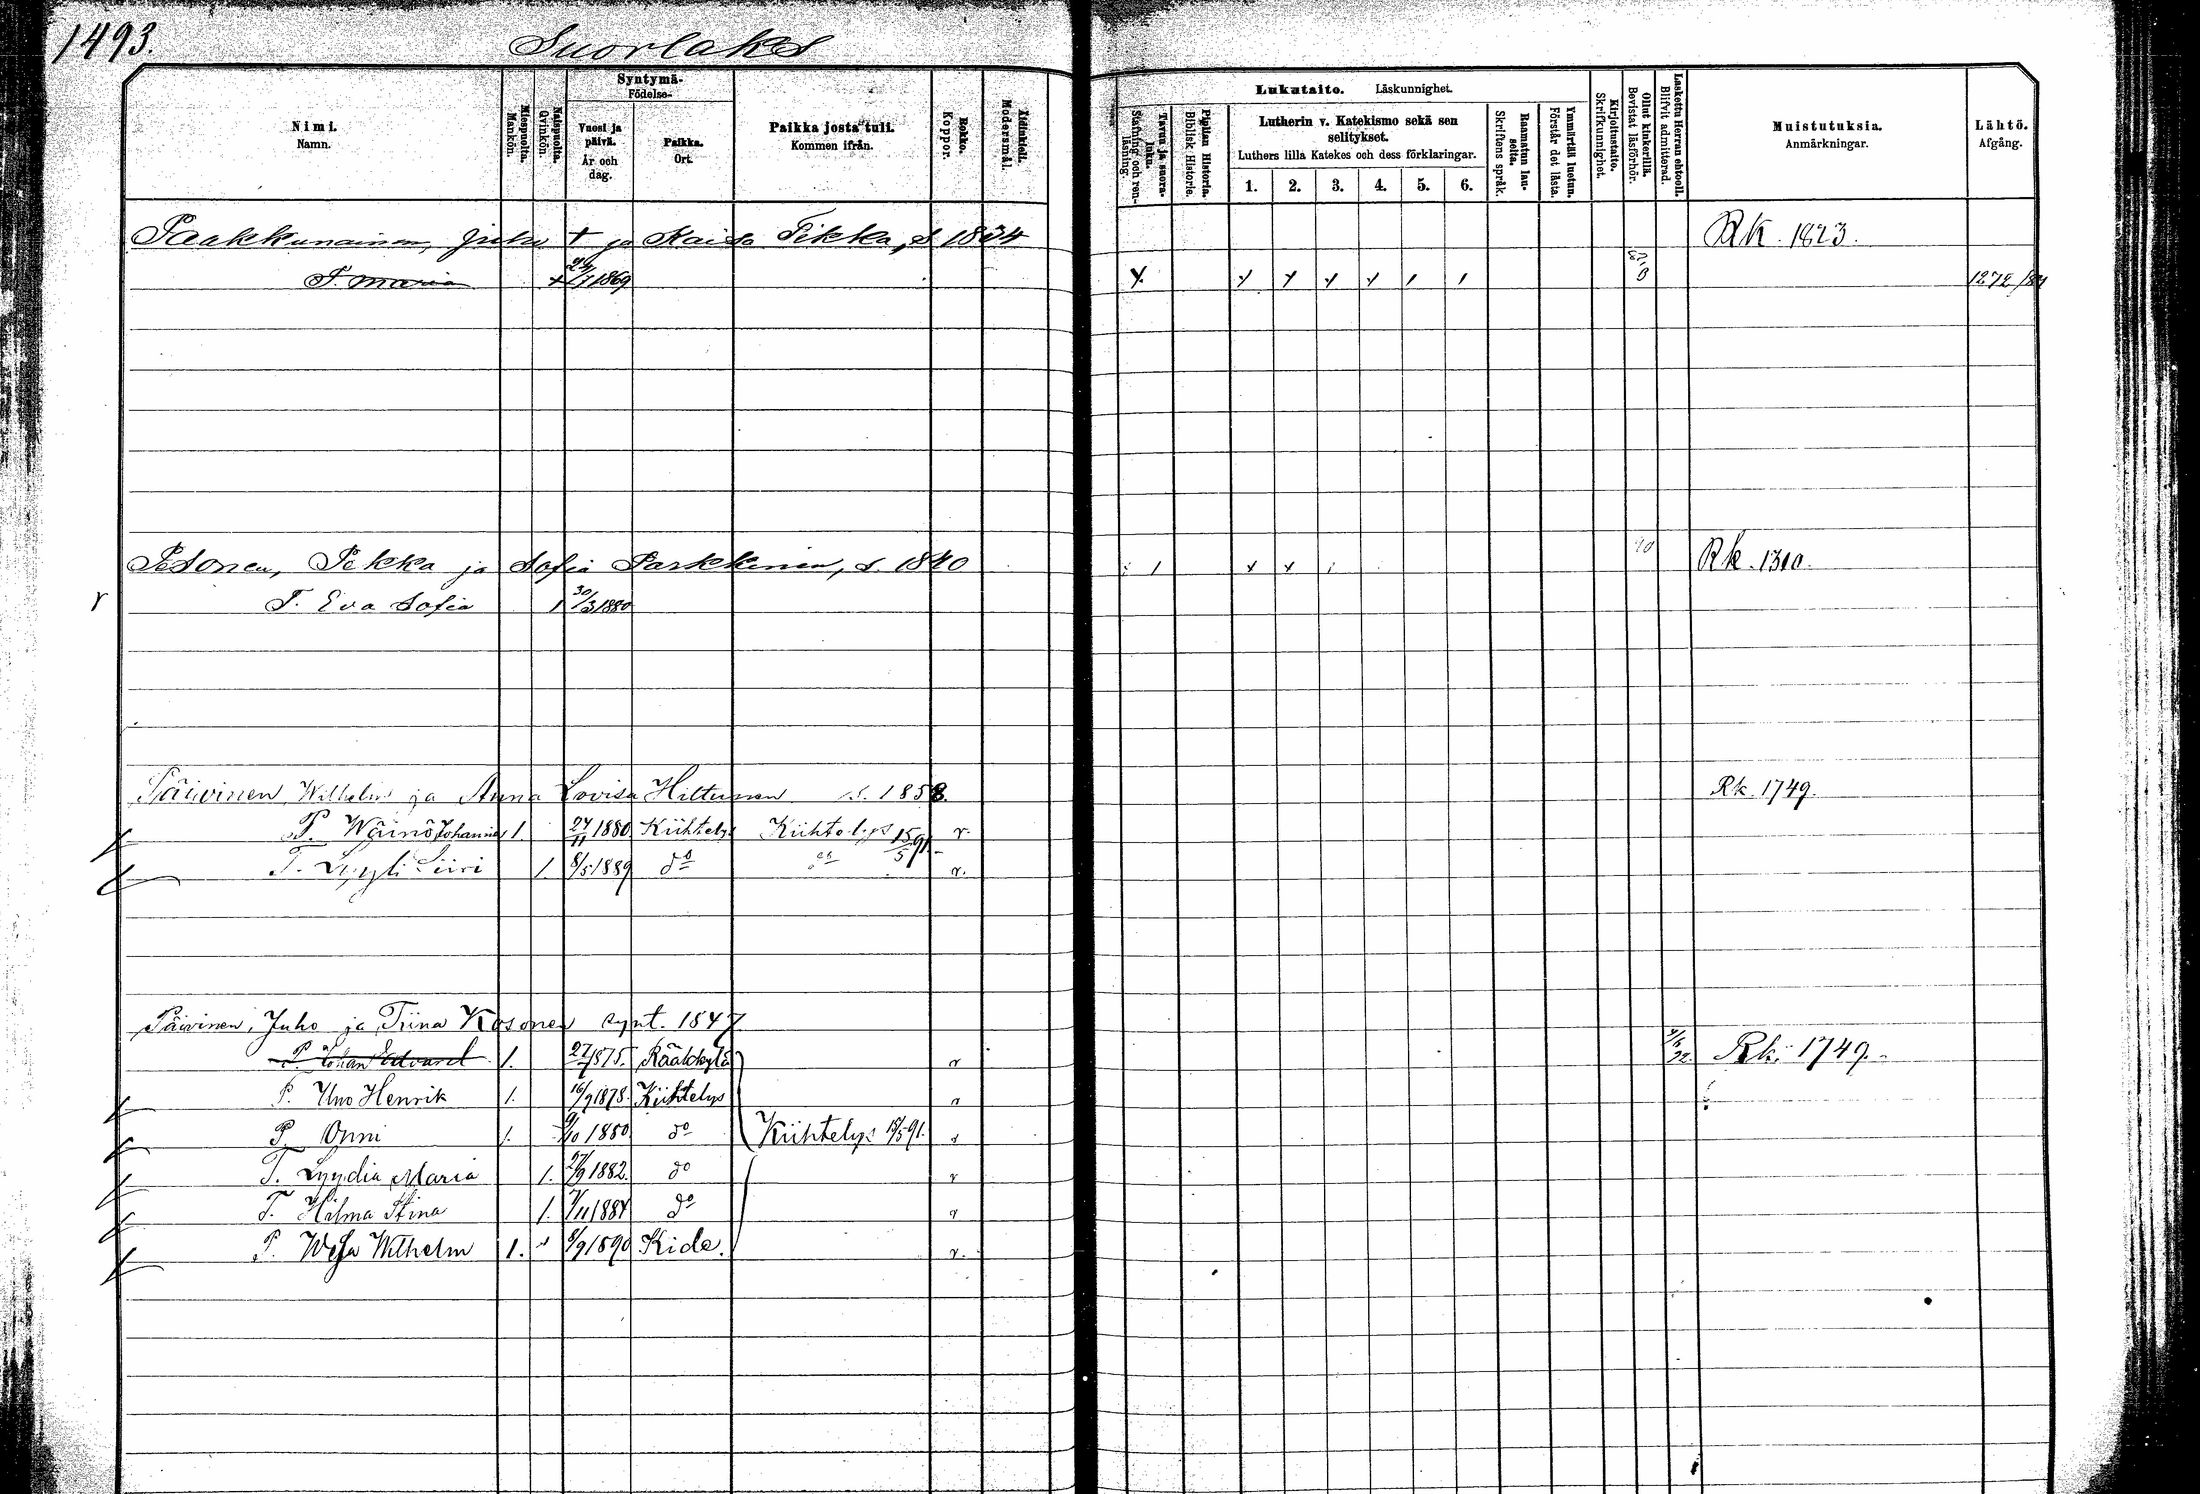 1493.
Suorlaks
Nimi. Namn.
Miespuolta. Mankön.
Naispuolta. Qvinkön.
Syntymä- Födelse-
Vuosi ja päivä. År och dag.
Paikka. Ort.
Paikka josta tuli. Kommen ifrån.
Rokko. Koppor.
Äidinkieli. Modersmål.
Lukutaito. Läskunnighet.
Tavuu ja suora- luku. Stafning och ren- läsning.
Piplian Historia. Biblisk Historie.
Lutherin v. Katekismo sekä sen selitykset.
Luthers lilla Katekes och dess förklaringar.
1. 2. 3. 4. 5. 6.
Raamatun lau- seita. Skriftens språk.
Ymmärtää luetun. Förstår det lästa.
Kirjoitustaito. Skrifkunnighet.
Ollut kinkerillä. Bevistat läsförhör.
Laskettu Herran ehtooll. Blifvit admitterad.
Muistutuksia. Anmärkningar.
Lähtö. Afgång.
Paakkunainen, Juho + ja Kaisa Tikka, s. 1834 Rk. 1823.
T. Maria + 1869 x x x x x 1 1 1272/84
Pesonen, Pekka ja Sofia Parkkinen, s. 1840 1 x x 1 90 Rk. 1310.
r T. Eva Sofia 1 30/3 1880
Päivinen, Wilhelm ja Anna Lovisa Hiltunen s. 1858. Rk. 1749.
P. Wäinö Johannes 1. 24/11 1880 Kiihtelys Kiihtelys 15/5 91. r.
T. Lyyli Siiri 1. 8/5 1889 do do r.
Päivinen, Juho ja Tiina Kosonen synt. 1847.
P. Johan Edvard 1. 27/7 1875. Rääkkylä r Rk. 1749.
P. Uno Henrik 1. 16/9 1878. Kiihtelys r
P. Onni 1. 9/10 1880. do Kiihtelys 15/5 91. r
T. Lyydia Maria 1. 27/9 1882. do r
T. Hilma Stina 1. 7/11 1884 do r
P. Wesa Wilhelm 1. 8/9 1890 Kide. r.